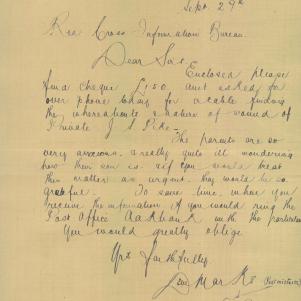 Sept. 29th
Red Cross Information Bureau.
Dear Sirs,
Enclosed please
find cheque £1.5.0 amt asked for
over phone today for a cable finding
the whereabouts & nature of wound of
Private J
The parents are so
very anxious, & really quite ill wondering
how their son is. if you would treat
this matter as urgent, they would be so
grateful. To save time, when you
receive the information if you would ring the
Post Office with the particulars
You would greatly oblige
Yrs faithfully